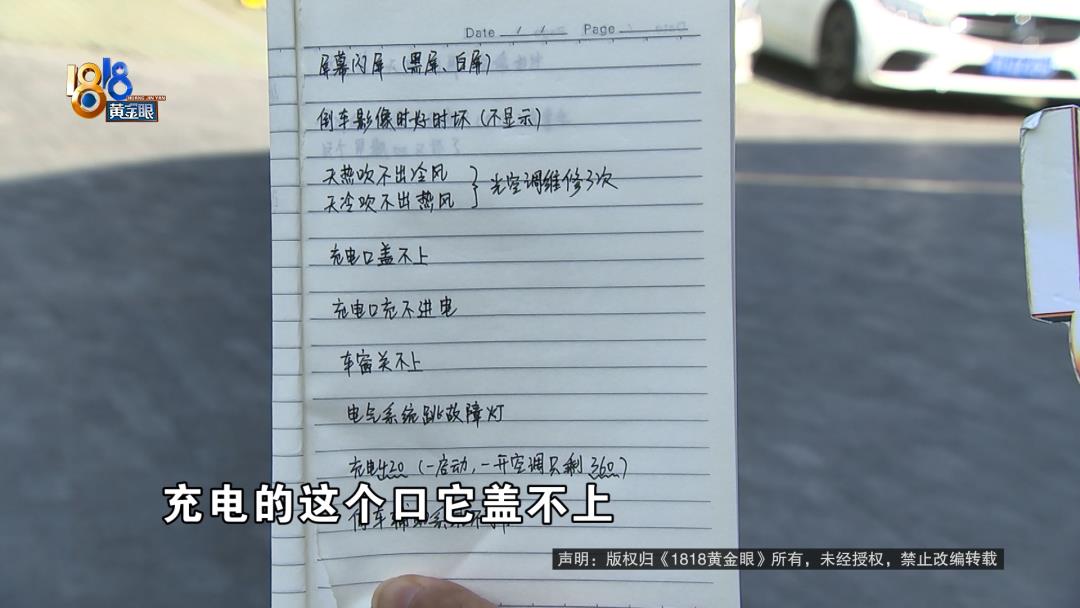 Date / / Page
1818
HUANG JIN YAN
黄金眼
屏幕闪屏（黑屏、白屏）
倒车影像时好时坏（不显示）
天热吹不出冷风
天冷吹不出热风
光空调维修3次
充电口盖不上
充电口充不进电
车窗关不上
电气系统跳故障灯
充电420（一启动，一开空调只剩360）
充电的这个口它盖不上
倒车
声明：版权归《1818黄金眼》所有，未经授权，禁止改编转载